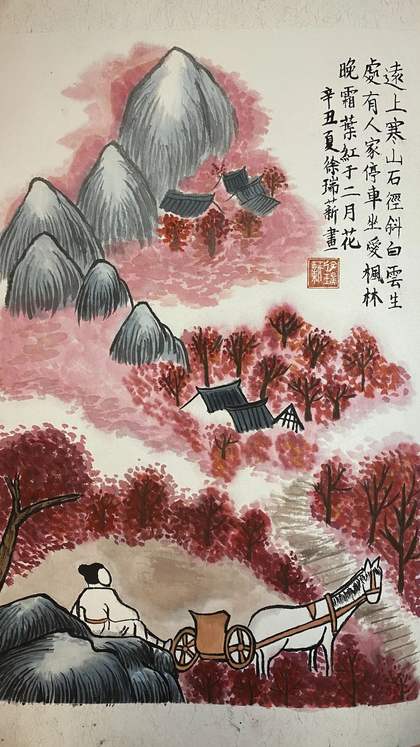 遠上寒山石徑斜白雲生
處有人家停車坐愛楓林
晚霜葉紅于二月花
辛丑夏徐瑞薪畫